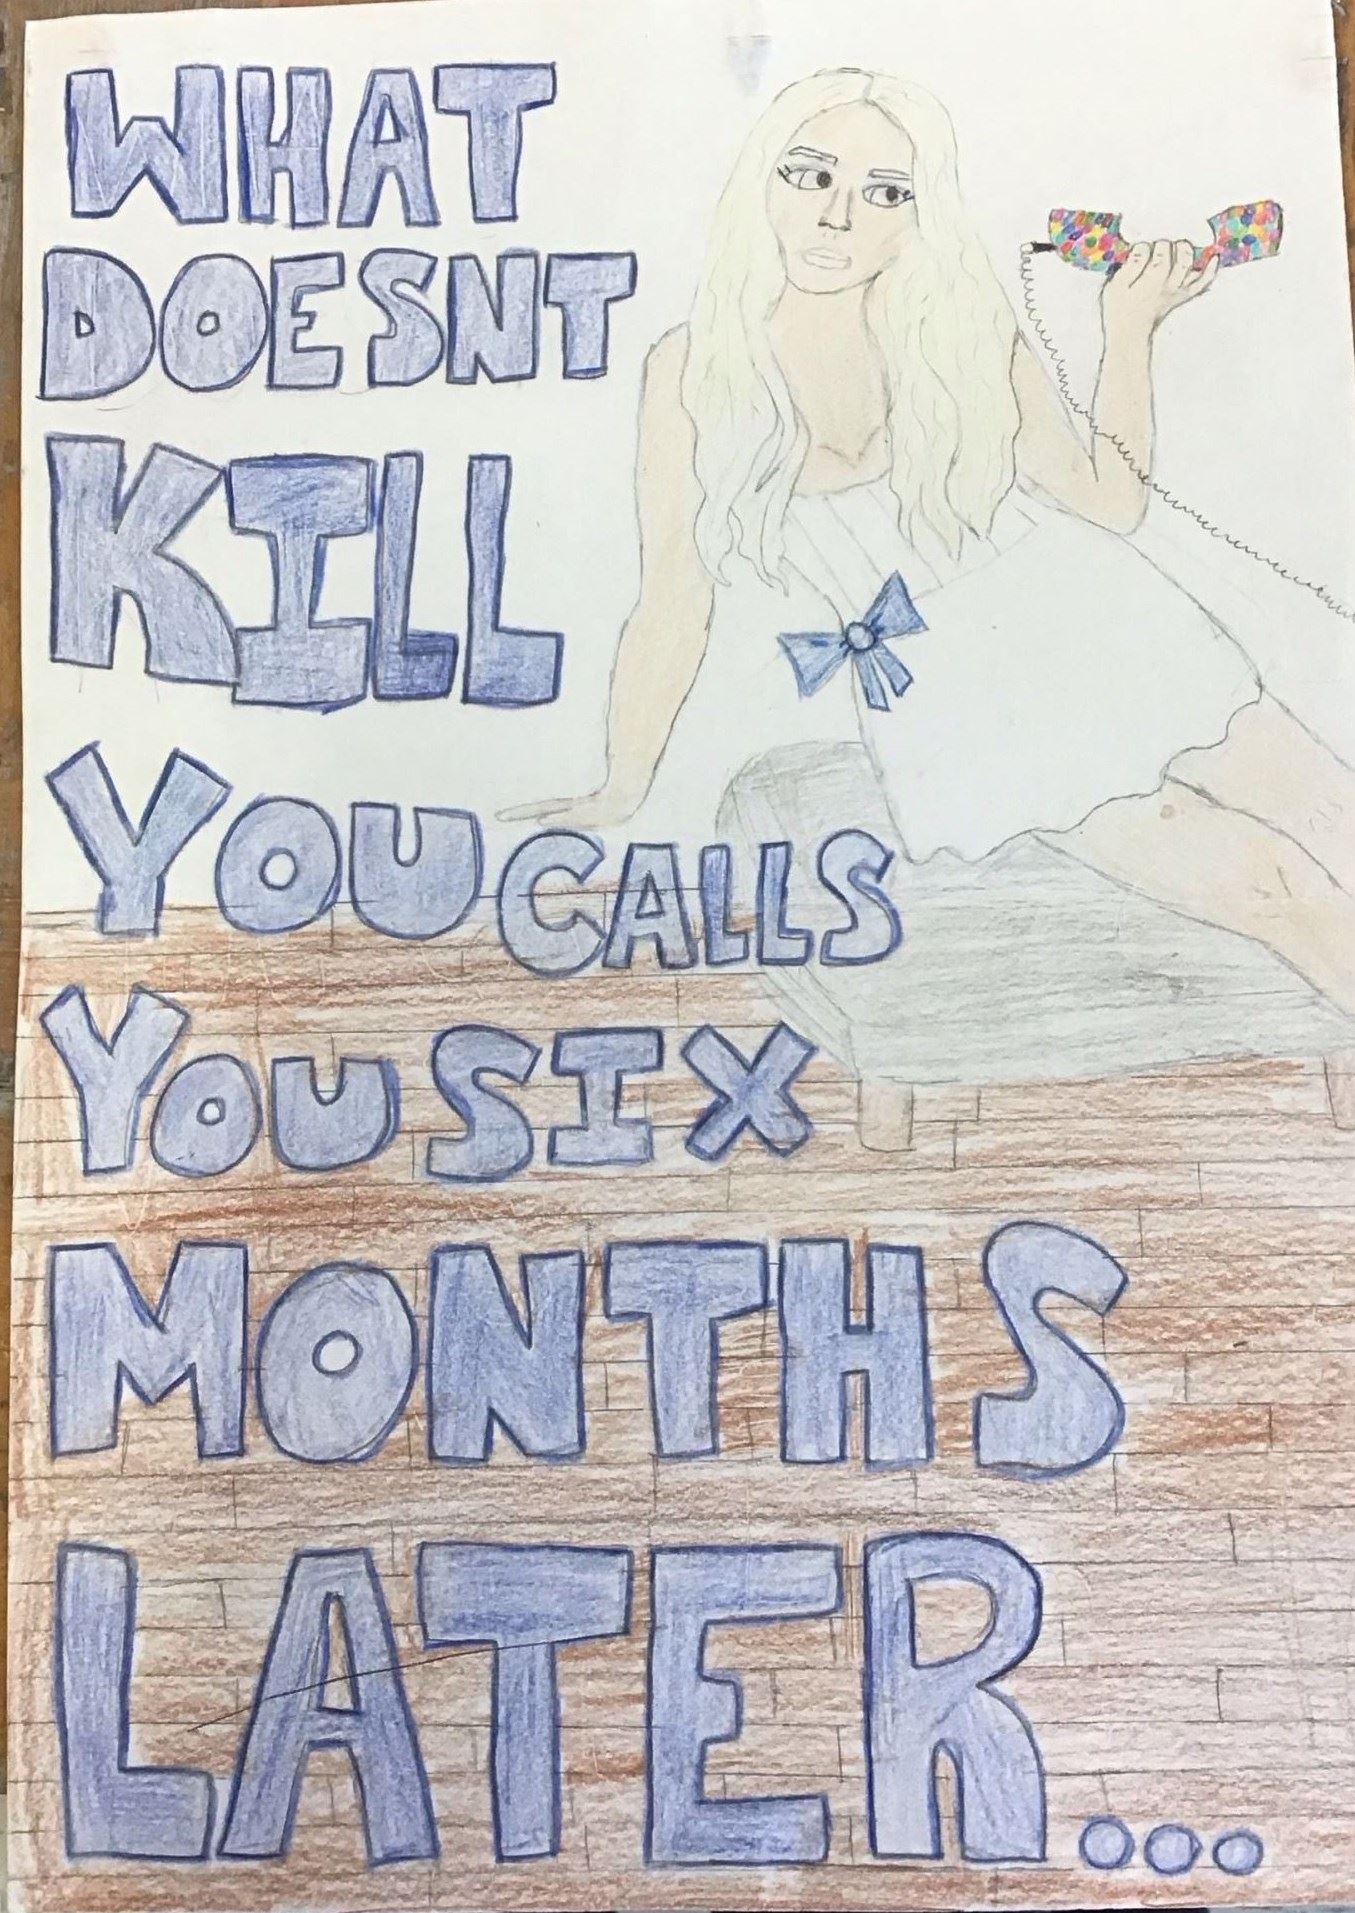 WHAT
DOESNT
KILL
YOU CALLS
YOU SIX
MONTHS
LATER...